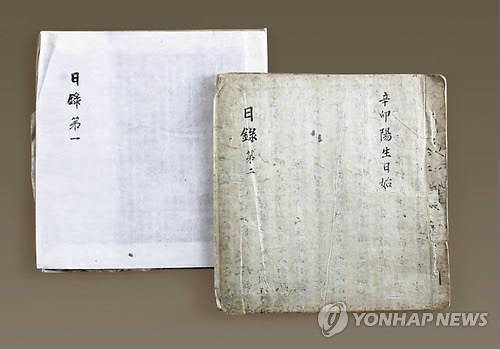 日錄 第一
辛卯陽生日始
日錄 第二
YONHAP NEWS